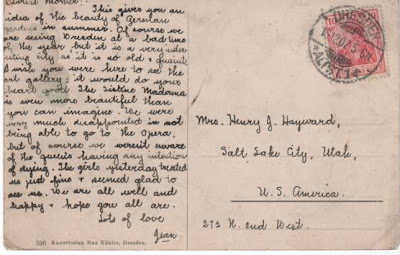 Dearest Mother:-
This gives you an
idea of the beauty of German
gardens in summer. Of course we
are seeing Dresden at a bad time
of the year but it is a very inter
esting city as it is so old & quaint
I wish you were here to see the
Art gallery; it would do your
heart good. The Sistine Madonna
is even more beautiful than
you can imagine. We were
very much disappointed in not
being able to go to the Opera,
but of course we weren't aware
of the queen's having any intention
of dying. The girls yesterday treated
us just fine & seemed glad to
see us. We are all well and
happy & hope you all are.
Lots of love
Jean.
520 Kunstverlag Max Köhler, Dresden.
DRESDEN
ALTST. 14
Mrs. Henry J. Hayward,
Salt Lake City, Utah,
U. S. America.
272 N. 2nd West.